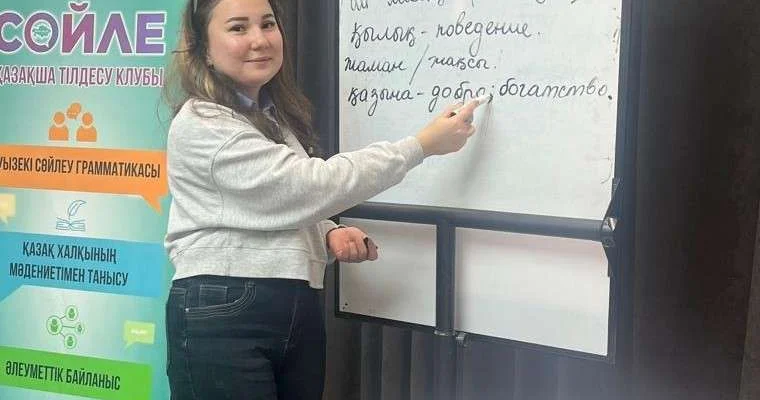 СӨЙЛЕ
ҚАЗАҚША ТІЛДЕСУ КЛУБЫ
УЫЗЕКІ СӨЙЛЕУ ГРАММАТИКАСЫ
ҚАЗАҚ ХАЛҚЫНЫҢ
МӘДЕНИЕТІМЕН ТАНЫСУ
ӘЛЕУМЕТТІК БАЙЛАНЫС
қылық - поведение.
жаман / жақсы.
қазына - добро; богатство.